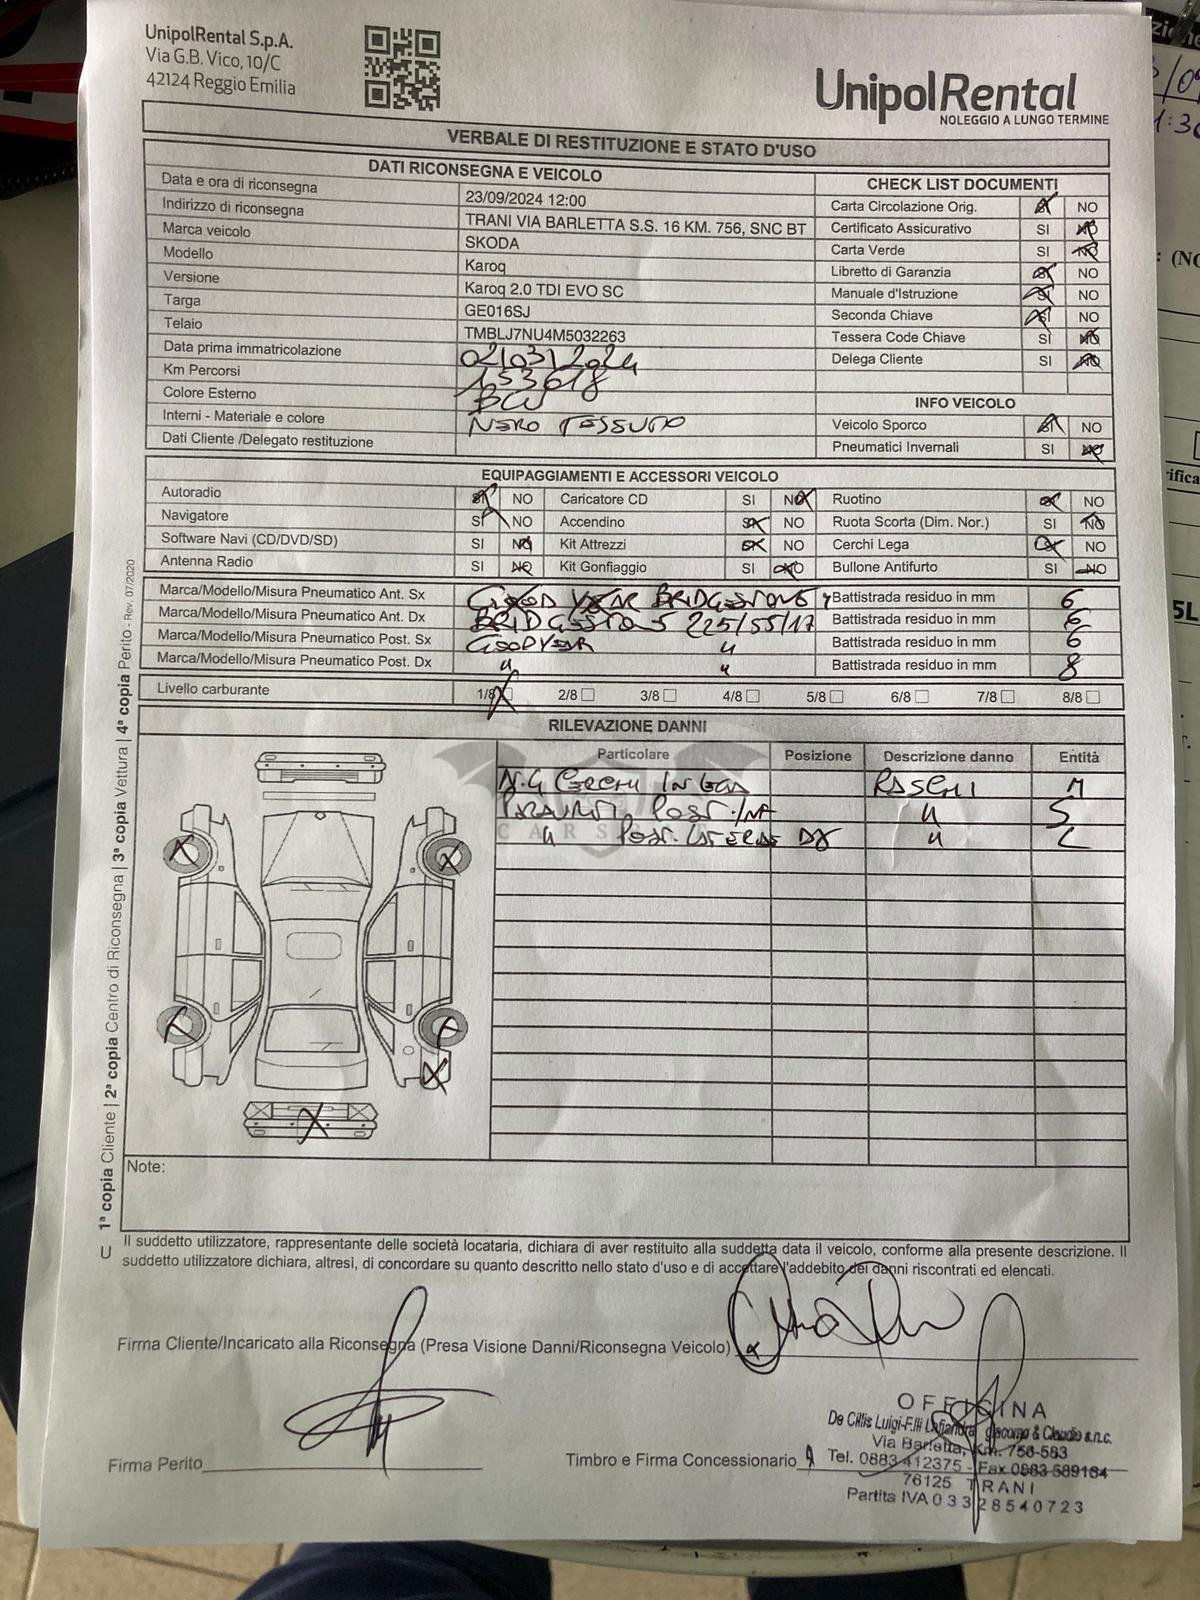 UnipolRental S.p.A.
Via G.B. Vico, 10/C
42124 Reggio Emilia
UnipolRental
NOLEGGIO A LUNGO TERMINE
VERBALE DI RESTITUZIONE E STATO D'USO
DATI RICONSEGNA E VEICOLO
Data e ora di riconsegna 23/09/2024 12:00
Indirizzo di riconsegna TRANI VIA BARLETTA S.S. 16 KM. 756, SNC BT
Marca veicolo SKODA
Modello Karoq
Versione Karoq 2.0 TDI EVO SC
Targa GE016SJ
Telaio TMBLJ7NU4M5032263
Data prima immatricolazione 02/03/2021
Km Percorsi 153618
Colore Esterno BLU
Interni - Materiale e colore NERO TESSUTO
Dati Cliente /Delegato restituzione
CHECK LIST DOCUMENTI
Carta Circolazione Orig. SI NO
Certificato Assicurativo SI NO
Carta Verde SI NO
Libretto di Garanzia SI NO
Manuale d'Istruzione SI NO
Seconda Chiave SI NO
Tessera Code Chiave SI NO
Delega Cliente SI NO
INFO VEICOLO
Veicolo Sporco SI NO
Pneumatici Invernali SI NO
EQUIPAGGIAMENTI E ACCESSORI VEICOLO
Autoradio SI NO Caricatore CD SI NO Ruotino SI NO
Navigatore SI NO Accendino SI NO Ruota Scorta (Dim. Nor.) SI NO
Software Navi (CD/DVD/SD) SI NO Kit Attrezzi SI NO Cerchi Lega SI NO
Antenna Radio SI NO Kit Gonfiaggio SI NO Bullone Antifurto SI NO
Marca/Modello/Misura Pneumatico Ant. Sx BRIDGESTONE Battistrada residuo in mm 6
Marca/Modello/Misura Pneumatico Ant. Dx BRIDGESTONE 225/55/17 Battistrada residuo in mm 6
Marca/Modello/Misura Pneumatico Post. Sx GOODYEAR " Battistrada residuo in mm 6
Marca/Modello/Misura Pneumatico Post. Dx " " Battistrada residuo in mm 8
Livello carburante 1/8 2/8 3/8 4/8 5/8 6/8 7/8 8/8
RILEVAZIONE DANNI
Particolare Posizione Descrizione danno Entità
N.4 CERCHI IN LEGA RASCHI M
PARAURTI POST. INF " S
" POST. LATERALE DX " L
CARS
Note:
1ª copia Cliente | 2ª copia Centro di Riconsegna | 3ª copia Vettura | 4ª copia Perito - Rev. 07/2020
U
Il suddetto utilizzatore, rappresentante delle società locataria, dichiara di aver restituito alla suddetta data il veicolo, conforme alla presente descrizione. Il
suddetto utilizzatore dichiara, altresì, di concordare su quanto descritto nello stato d'uso e di accettare l'addebito dei danni riscontrati ed elencati.
Firma Cliente/Incaricato alla Riconsegna (Presa Visione Danni/Riconsegna Veicolo)
Firma Perito
Timbro e Firma Concessionario
OFFICINA
De Cillis Luigi-F.lli Giacomo & Claudio s.n.c.
Via Barletta, Km. 756-583
Tel. 0883 412375 - Fax 0883 589184
76125 TRANI
Partita IVA 03328540723